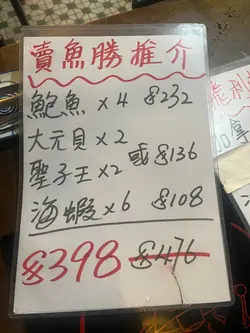 賣魚勝推介
鮑魚 x 4 $232
大元貝 x 2
聖子王 x 2 或 $136
海蝦 x 6 $108
$398 $476